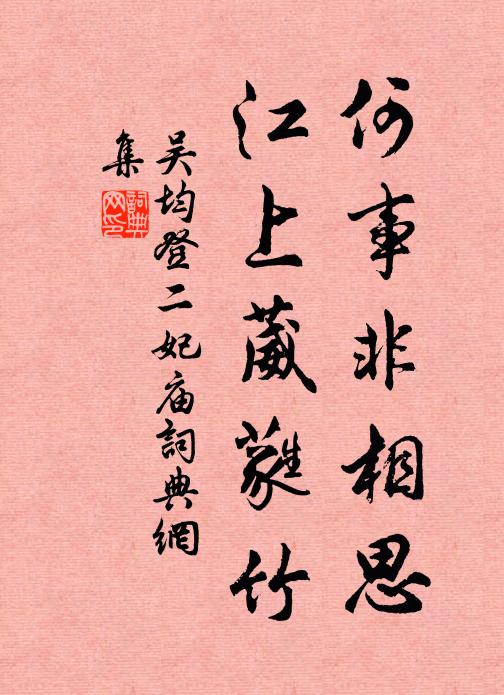 何事非相思
江上葳蕤竹
吴均登二妃庙詞典網
集
詞典
网印